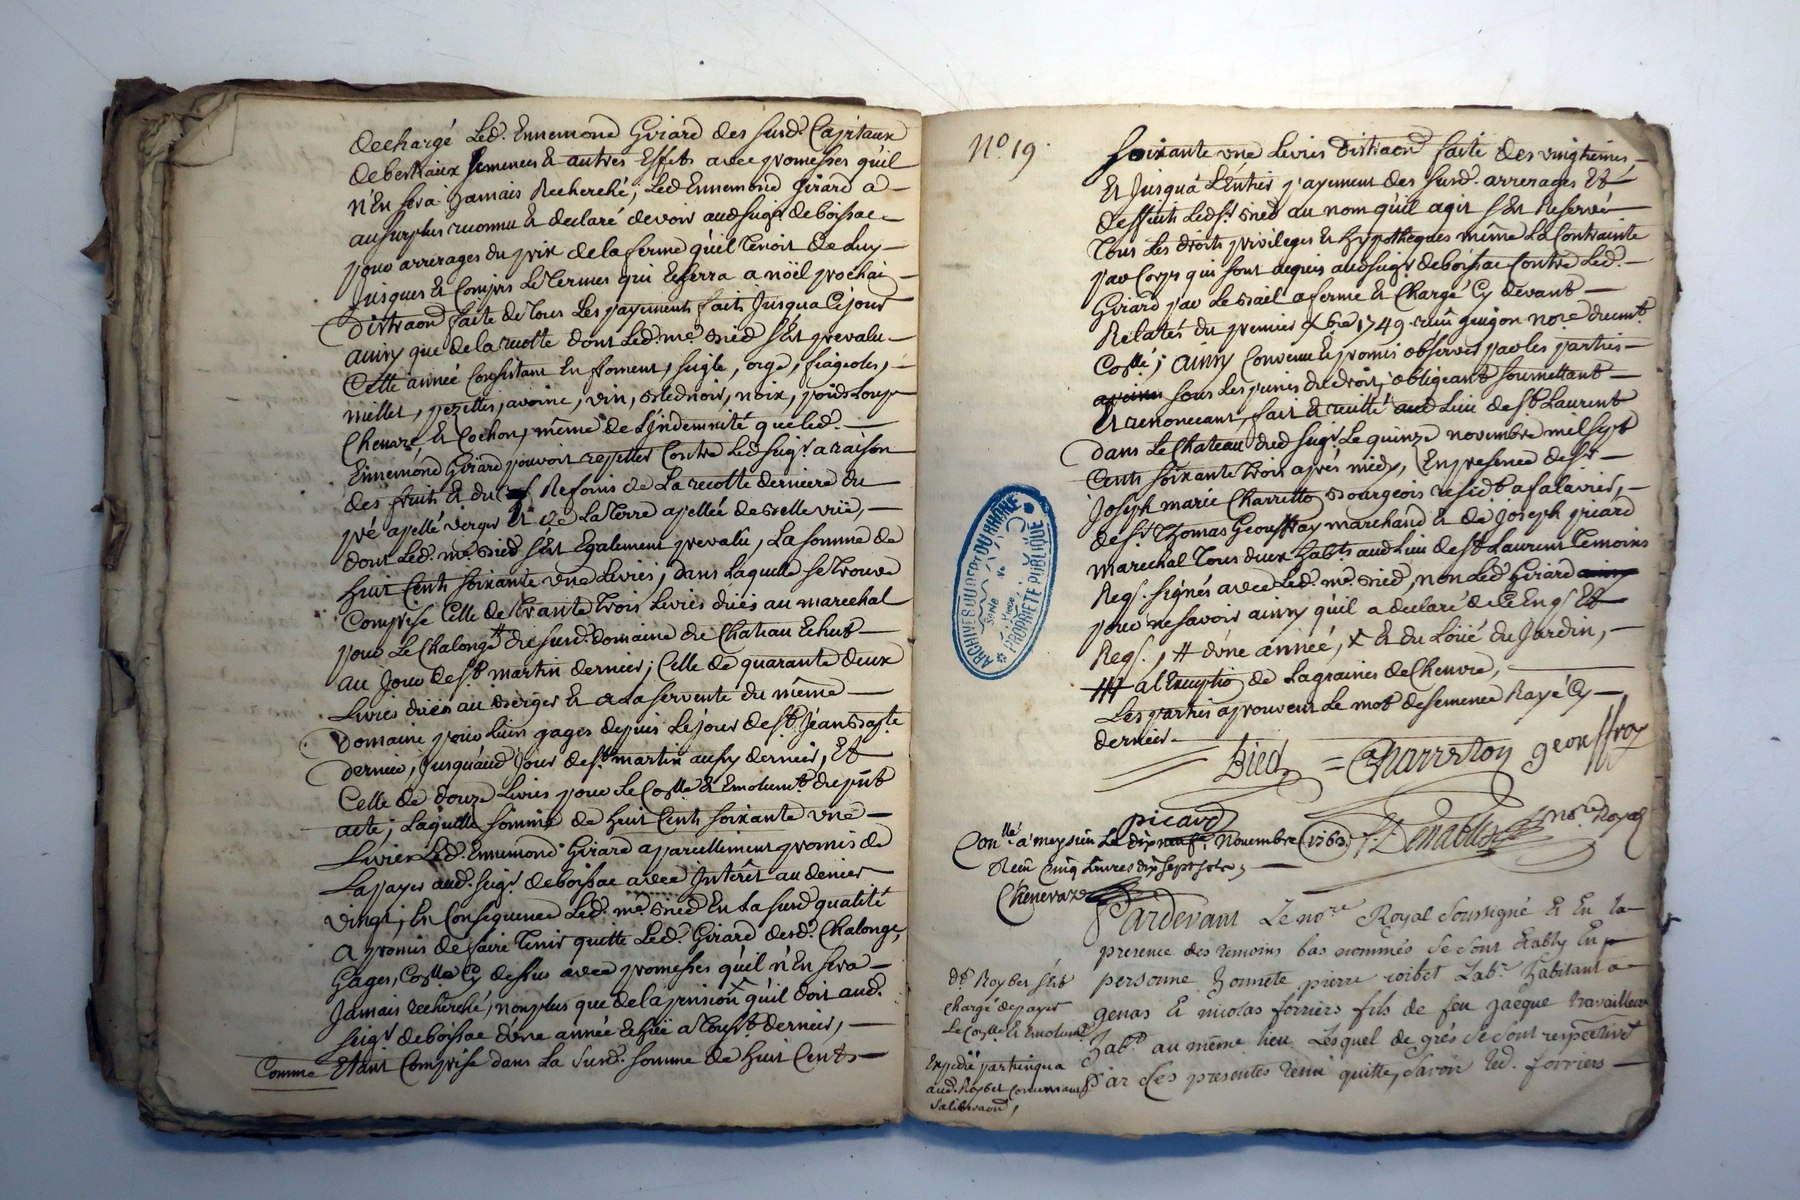 dechargé Led. Ennemond Girard des susd. Capitaux
de bestiaux semences & autres Effets avec promesses qu'il
n'En sera Jamais Recherché; Led. Ennemond Girard a
au surplus reconnu & declaré devoir aud. seigr. de boissac
pour arrerages du prix de la ferme qu'il Tenoit de Luy
Jusques & Compris Le Termes qui Echerra a noël prochai
Distraon faite de Tous Les payements faits Jusqua Ce jour
ainsy que de la recolte dont Led. me. Bied s'Est prevalu
Cette année Consistant En froment, seigle, orge, fiageoles,
millet, pezettes, avoine, vin, bled noir, noix, poids Loup
Chenvre, & Cochon, même de L'indemnité que led.
Ennemond Girard pouvoit repetter Contre Led. seigr. a raison
des fruits & du Refoins de La recolte derniere du
pré apellé verger & de La Terre apellée de belle viie,
dont Led. me. Bied s'Est Egalement prevalû, La somme de
huit Cents soixante une Livres; dans Laquelle se Trouve
Comprise Celle de Trante Trois Livres dües au marechal
pour Le Chalonge # du susd. domaine du Chateau Echut
au Jour de st. martin dernier; Celle de quarante deux
Livres dües au Berger & a La servente du même
Domaine pour Leurs gages depuis Le jour de st. Jean Bapte.
dernier, Jusqu'aud. Jour de st. martin aussy dernier, Et
Celle de douze Livres pour Le Coolle & Emolumt. du pnt
acte; Laquelle somme de huit Cents soixante une
Livres Led. Ennemond Girard a pareillement promis de
La payer aud. seigr. de boissac avec Intérêt au denier
vingt; En Consequence Led. me. Bied En La susd. qualité
a promis de faire Tenir quitte Led. Girard desd. Chalonge,
Gages, Coolle Cy dessus avec promesses qu'il n'En sera
Jamais recherché, non plus que de la pension x qu'il doit aud.
seigr. de boissac d'une année Echüe a Toussts. dernier,
Comme Etant Comprise dans La susd. somme de huit Cents
No. 19.
Soixante une Livres Distraon faite des vingtiemes
Et Jusqu'a L'Entier payement des susd. arrerages Et
Led. sr. Bied au nom qu'il agit s'Est Reservé
Tous Les droits privileges & hypotheques même La Contrainte
par Corps qui sont acquis aud. seigr. de boissac Contre Led.
Girard par Le Bail a ferme & Chargé Cy devant
Relatés du premier xbre 1749. reçu guigon nore. duemt.
Collé; ainsy Convenu & promis observer par les parties
sous Les peines du droit, obligeant soumettant
& renonceant, fait & recitté aud. Lieu de st. Laurent
dans Le Chateau dud. seigr. Le quinze novembre mil sept
Cents soixante Trois après midy, En presence de sr.
Joseph marie Charretton Bourgeois resident a falavier,
de sr. Thomas Geouffray marchand & de Joseph picard
marechal Tous deux habts. aud. Lieu de st. Laurent Temoins
Req. signés avec Led. me. Bied, non Led. Girard
pour ne savoir ainsy qu'il a declaré de Ce Enq. Et
Req. / # d'une année, x & du Loüé du Jardin,
## a L'Exception de La graines de Chenvre,
Les parties aprouvent Le mot de semence Rayé Cy
dernier.
Bied = Charretton geouffray
picard
Denablez nore. Royal
Conllé. a meysieu Le dix neuf Novembre 1763.
Reçu Cinq Livres dix sept sols
Chenevaz
Pardevant Le nore. Royal soussigné & En la
presence des temoins bas nommés se sont Etably En
personne honnete pierre roibet Labr. habitant a
genas & nicolas forriers fils de feu jacque travailleur
habt. au même lieu Lesquel de grés se sont respectivt.
Par ses presentes tenu quitte, savoir Led. forriers
dt. Roybet s'Est
chargé de payer
Le Coolle & Emolumt.
Expédié par
aud. Roybet